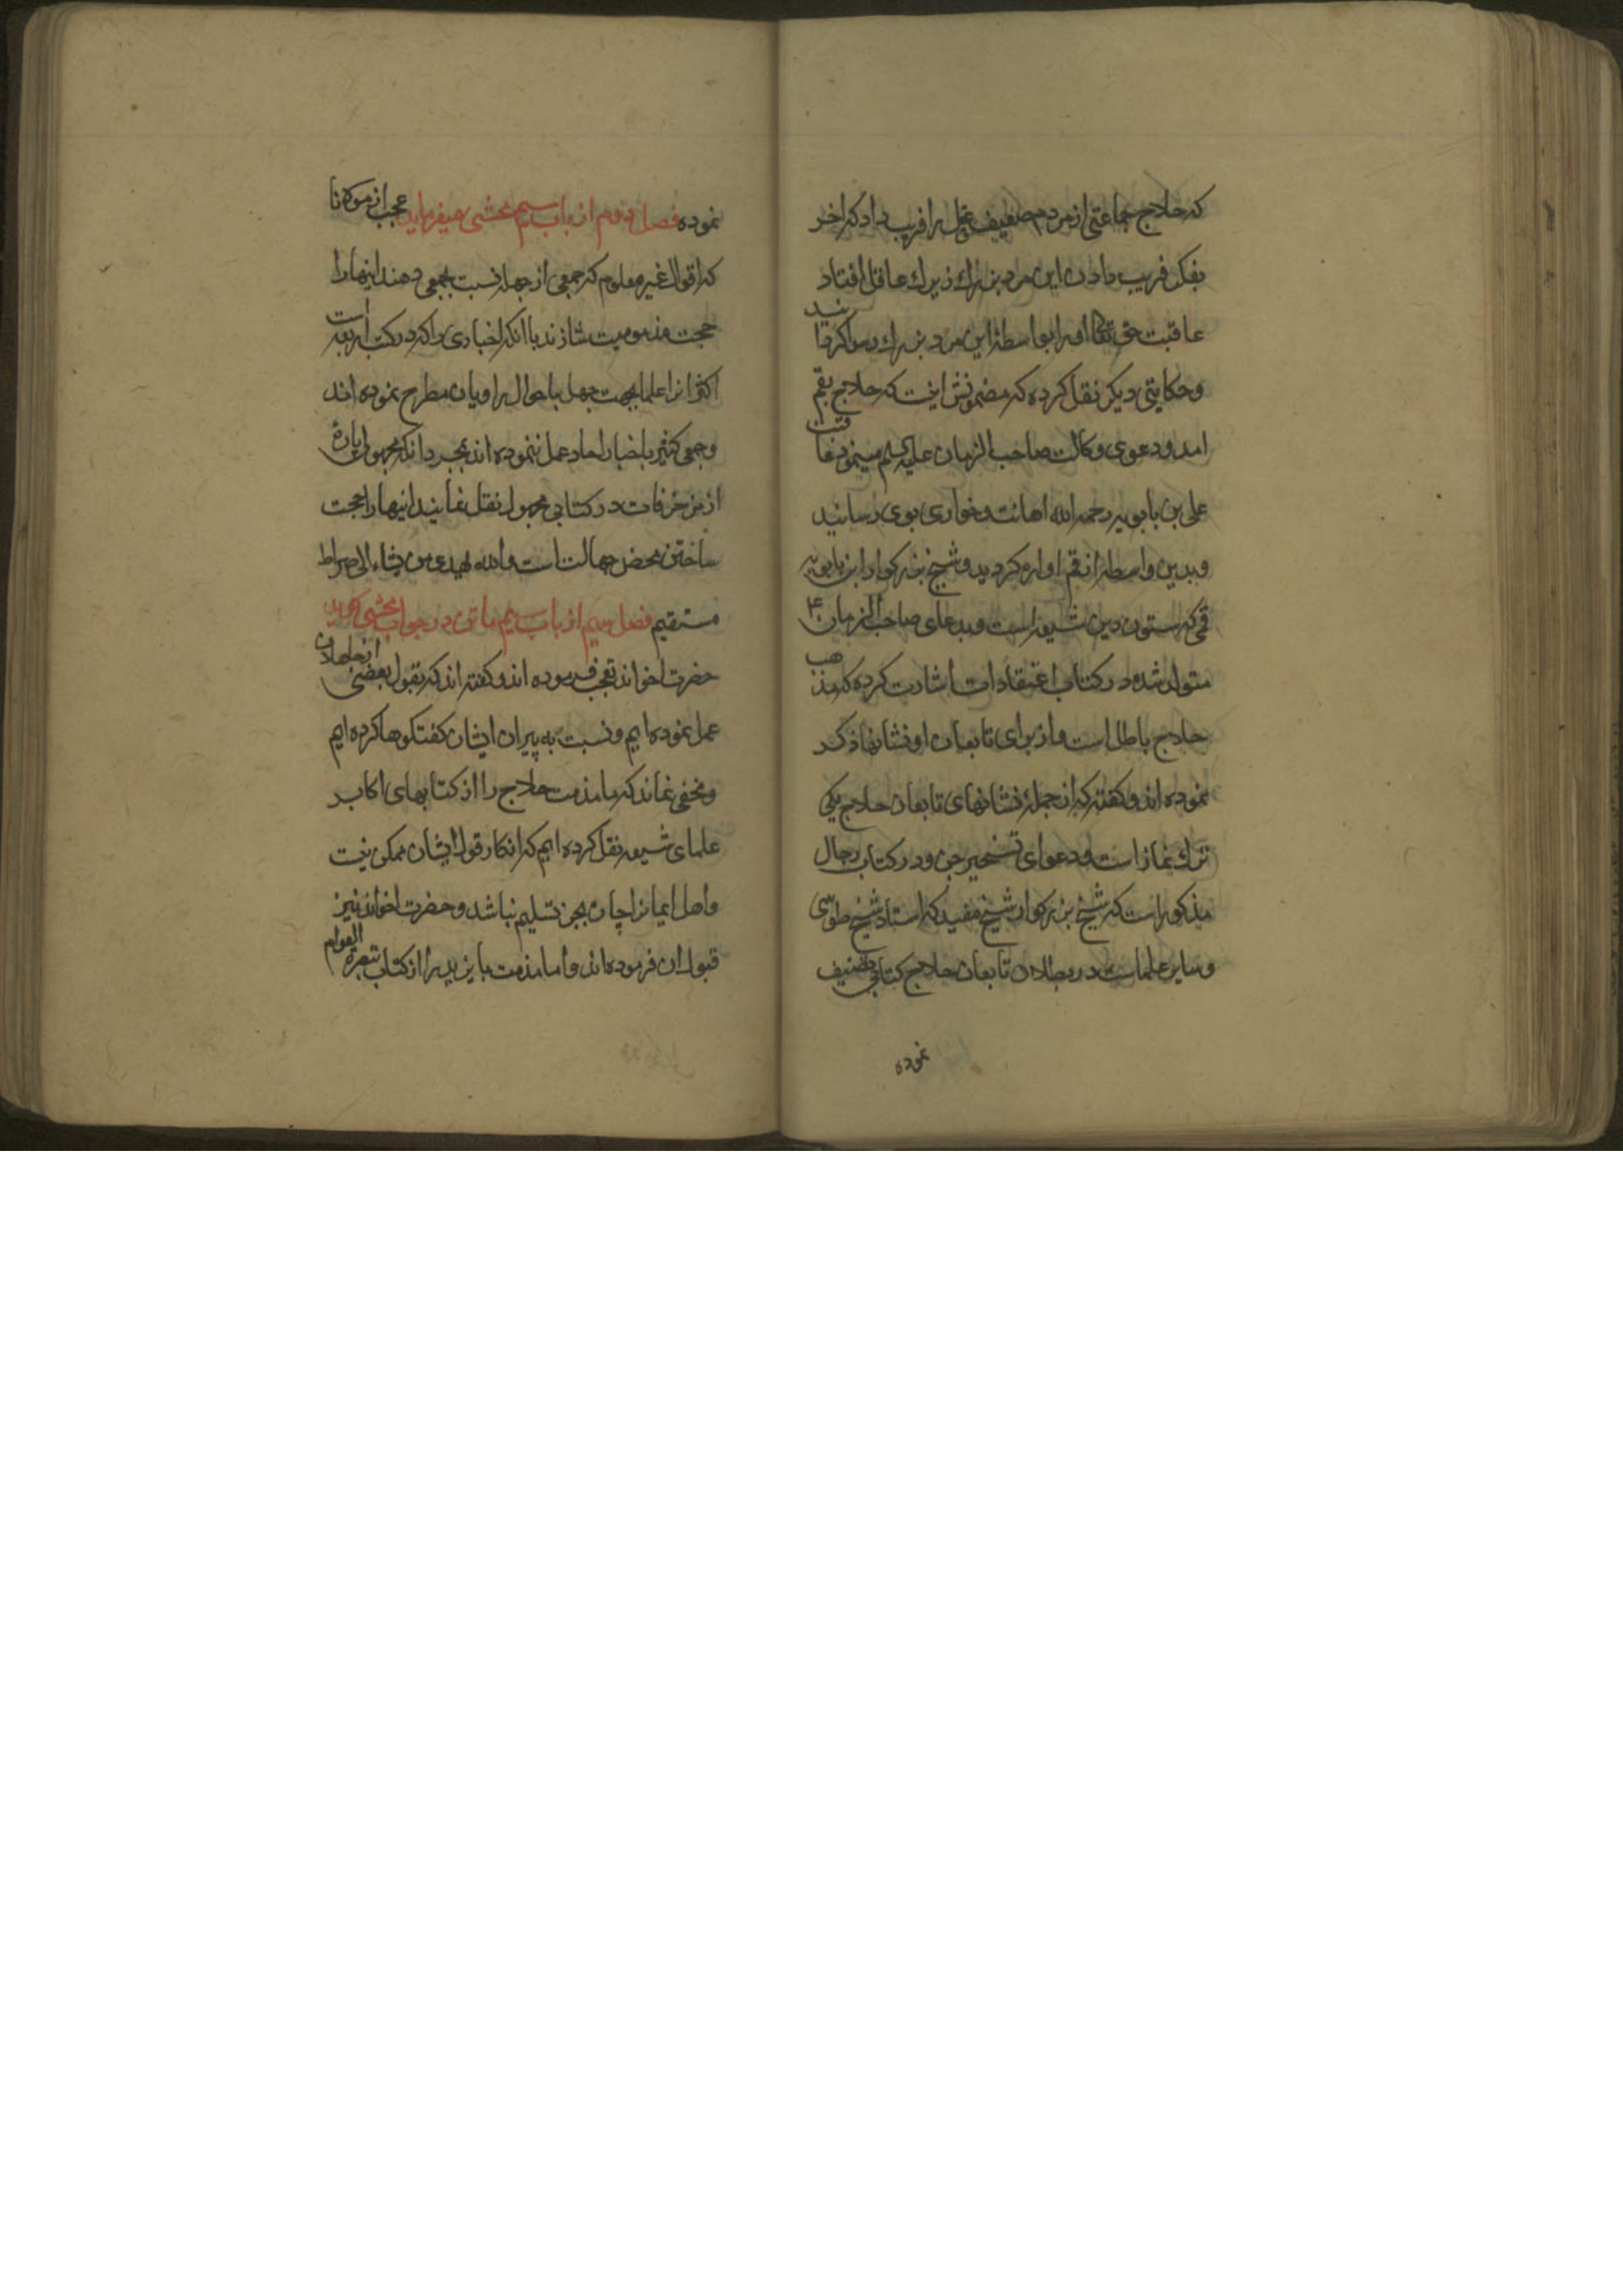 که حلاج جماعتی از مردم ضعیف عقل را فریب داد که اخر
بفکر فریب دادن این مرد بزرك زیرك عاقل افتاد
عاقبت حق تعالی او را بواسطهٔ این مرد بزرك رسوا کردانید
وحکایتی دیکر نقل کرده که مضمونش اینست که حلاج بقم
امد ودعوی وکالت صاحب الزمان علیه السلم مینمود
علی بن بابویه رحمه الله اهانت وخواری بوی رسانید
وبدین واسطه از قم اواره کردید وشیخ بزرکوار ابن بابویه
قمی که ستون دین شیعه است وبدعای صاحب الزمان ع
متولد شده در کتاب اعتقادات اشارت کرده که مذهب
حلاج باطل است واز برای تابعان او نشانها ذکر
نموده اند وکفته که از جملهٔ نشانهای تابعان حلاج یکی
ترك نماز است ودعوای تسخیر جن ودر کتاب رجال
مذکور است که شیخ بزرکوار شیخ مفید که استاد شیخ طوسی
وسایر علماست در بطلان تابعان حلاج کتابی تصنیف
نموده
نموده فصل دوم از باب سیم محشی میفرماید عجب از مولانا
که اقوال غیر معلوم که جمعی از جهله نسبت بجمعی دهند اینها را
حجت مذمومیت سازند با انکه اخباری را که در کتب اربعه است
اکثر انرا علما بجهت جهل باحوال راویان مطرح نموده اند
وجمعی کثیر باخبار احاد عمل ننموده اند بمجرد انکه مجهولی پارهٔ
از مزخرفات در کتابی مجهول نقل نمایند اینها را حجت
ساختن محض جهالت است والله یهدی من یشاء الی صراط
مستقیم فصل سیم از باب سیم ماتن در جواب محشی کوید
حضرت اخوند تعجب فرموده اند وکفته اند که بقول بعضی از جاهلان
عمل نموده ایم ونسبت به پیران ایشان کفتکوها کرده ایم
ومخفی نماند که ما مذمت حلاج را از کتابهای اکابر
علمای شیعه نقل کرده ایم که انکار قول ایشان ممکن نیست
واهل ایمانرا چاره بجز تسلیم نباشد وحضرت اخوند نیز
قبول ان فرموده اند واما مذمت بایزید را از کتاب تبصرة العوام